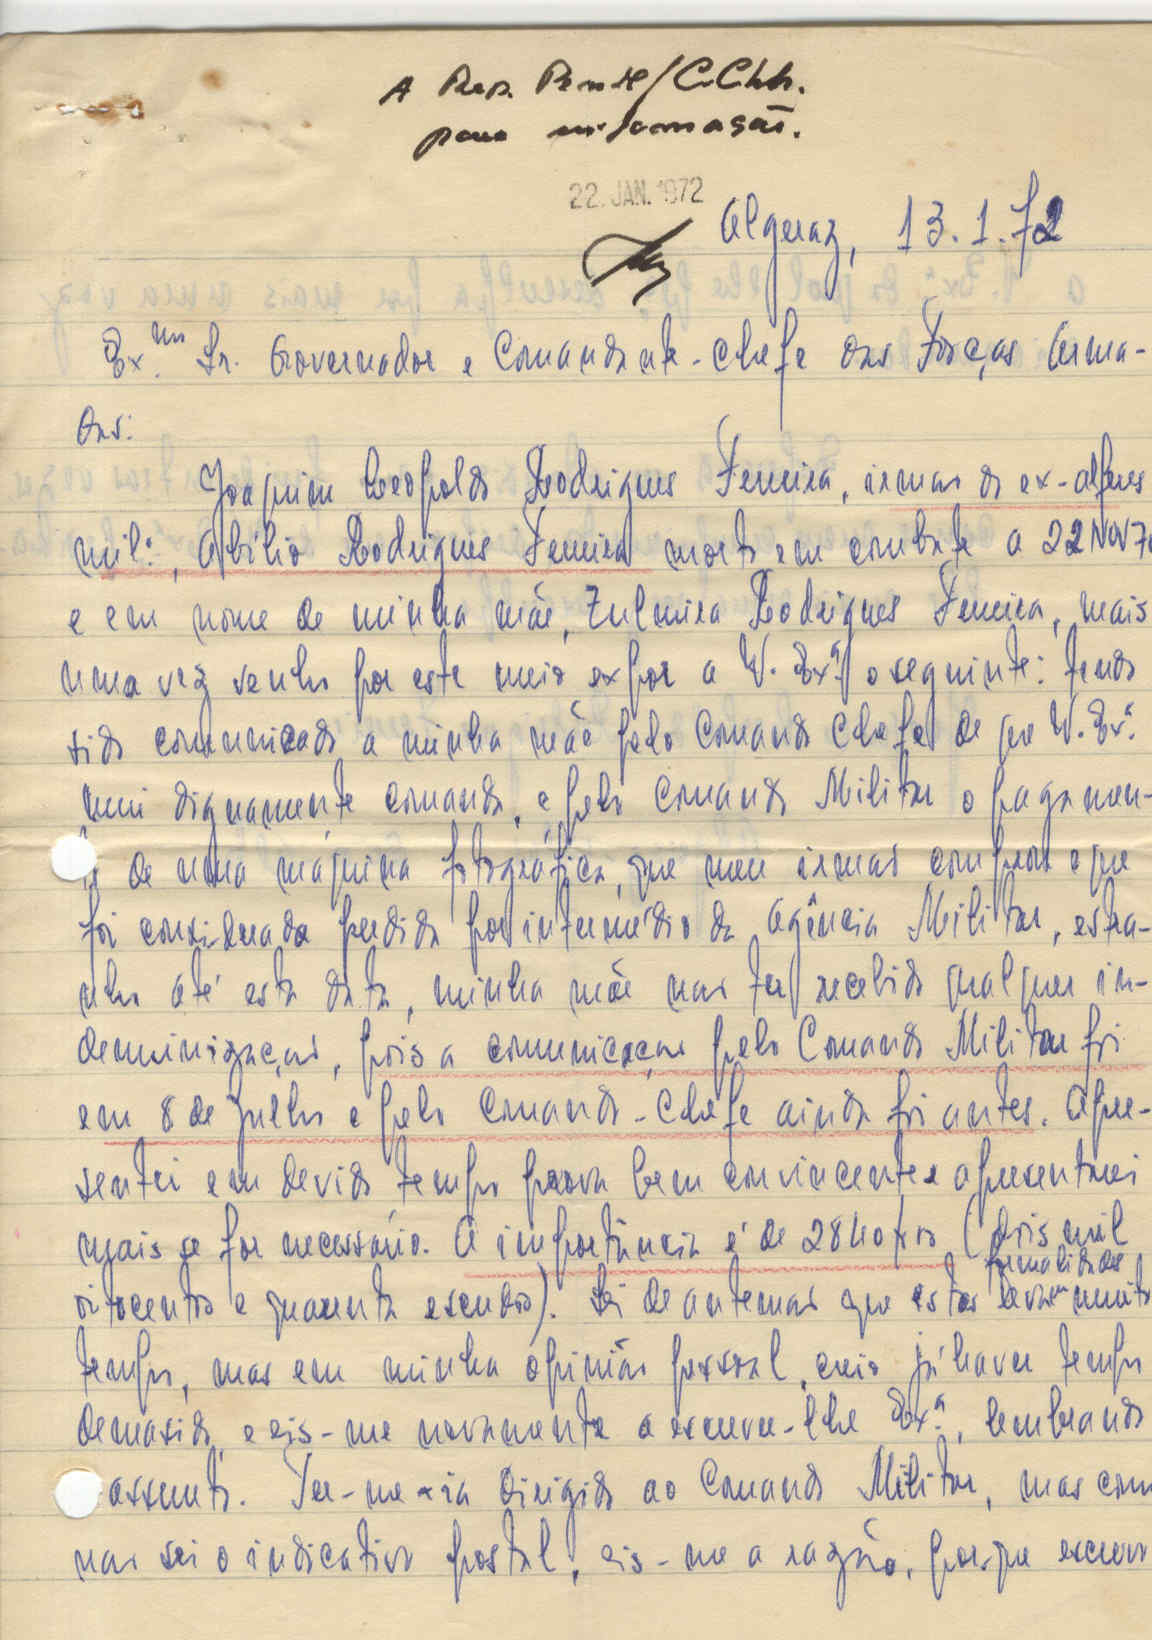 A Rep.
para informação.
22. JAN. 1972
Algeraz, 13.1.72
Ex.mo Sr. Governador e Comandante-chefe das Forças Arma-
das:
Joaquim Leopoldo Rodrigues Ferreira, irmao do ex-alferes
mil.º, Abílio Rodrigues Ferreira morto em combate a 22 NOV 70
e em nome de minha mãe, Zulmira Rodrigues Ferreira, mais
uma vez venho por este meio expor a V. Exª. o seguinte: tendo
sido comunicado a minha mãe pelo Comando Chefe de que V. Exª.
mui dignamente comanda, e pelo Comando Militar o pagamen-
to de uma máquina fotográfica, que meu irmao comprou e que
foi considerada perdida por intermédio da Agência Militar, estra-
nho até esta data, minha mãe nao ter recebido qualquer in-
demnizaçao, pois a comunicaçao pelo Comando Militar foi
em 8 de Julho e pelo Comando-Chefe ainda foi antes. Apre-
sentei em devido tempo prova bem convincente e apresentarei
mais se for necessário. A importância é de 2840$00 (dois mil
oitocentos e quarenta escudos). Sei de antemao que estas formalidades levam muito
tempo, mas em minha opinião pessoal, creio já haver tempo
demasiado, e eis-me novamente a escrever-lhe Exª., lembrando
assunto. Ter-me-ia dirigido ao Comando Militar, mas como
nao sei o indicativo postal, eis-me a razão, porque escrevo